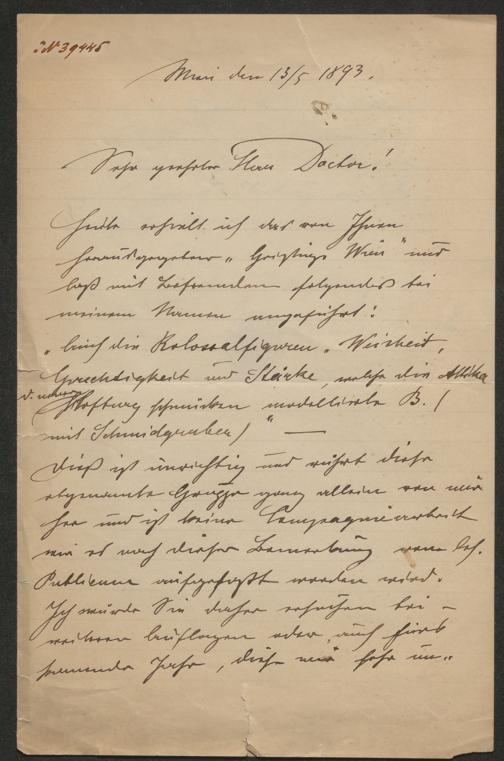 I.N 39445
Wien den 13/5 1893.
Sehr geehrter Herr Doctor!
Heute erhielt ich das von Ihnen
herausgegebene „Geistige Wien" und
las mit Befremden folgendes bei
meinem Namen angeführt:
„Auch die Kolossalfiguren „Weisheit,
Gerechtigkeit und Stärke, welche die Attika
d. neuen Hofburg schmücken modellierte B. (
mit Schmidgruber)" —
Dieß ist unrichtig und rührt diese
obgenannte Gruppe ganz allein von mir
her und ist keine Compagniearbeit
wie es nach dieser Bemerkung vom
Publicum aufgefaßt werden wird.
Ich würde Sie daher ersuchen bei –
weiteren Auflagen oder auch fürs
kommende Jahr, diese mir sehr un„